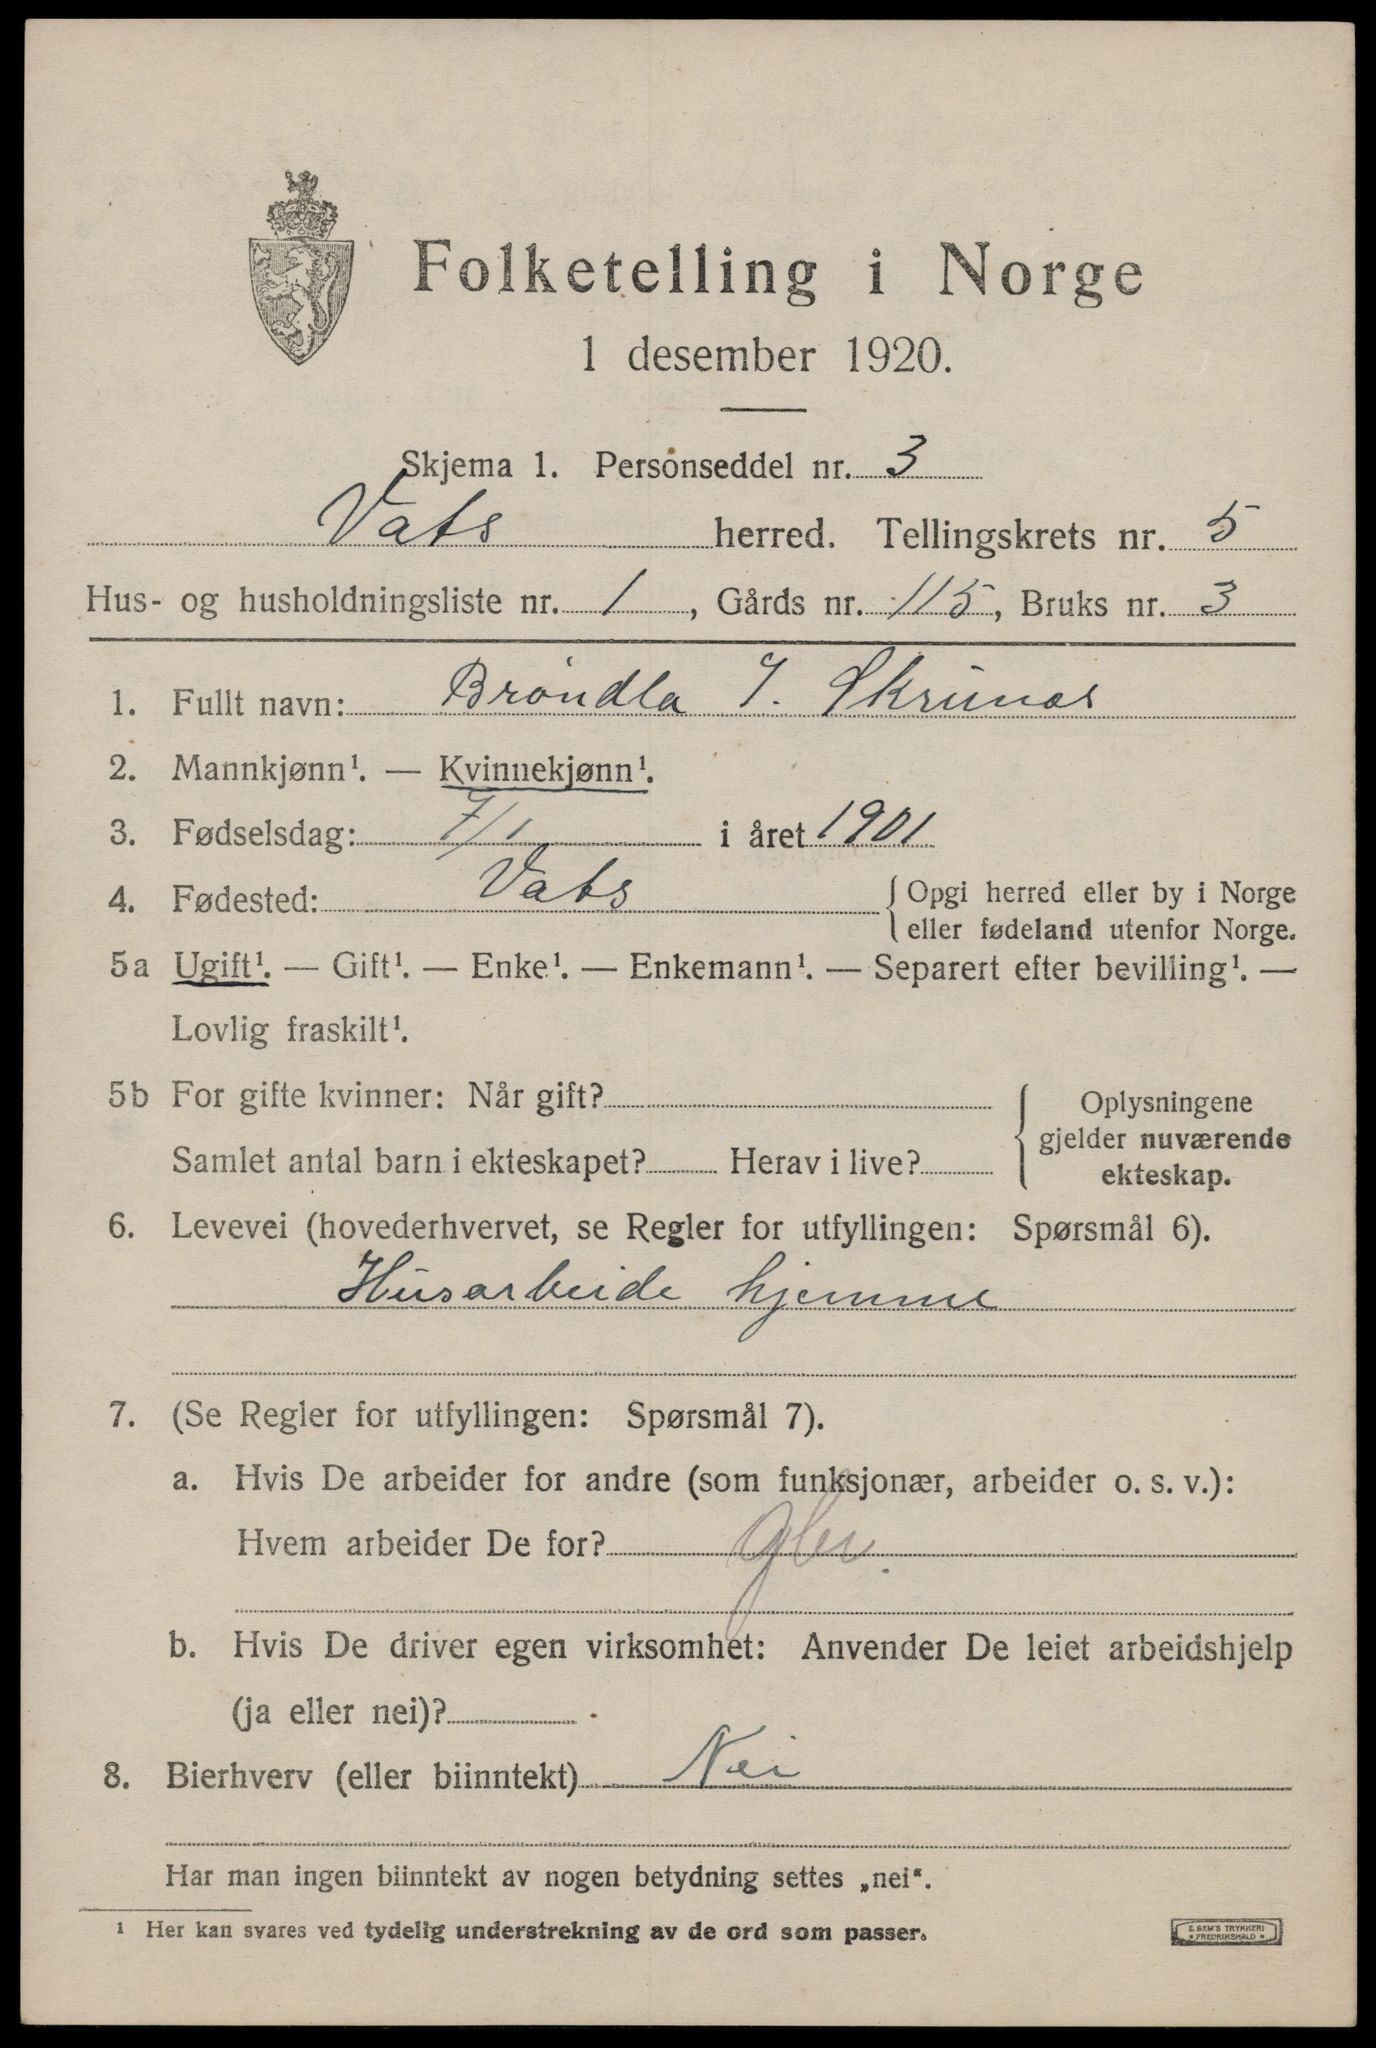 Folketelling i Norge
1 desember 1920.
Skjema 1. Personseddel nr. 3
Vats herred. Tellingskrets nr. 5
Hus- og husholdningsliste nr. 1, Gårds nr. 115, Bruks nr. 3
1. Fullt navn: Bröndla I. Skrunes
2. Mannkjønn¹. — Kvinnekjønn¹.
3. Fødselsdag: 7/1 i året 1901
4. Fødested: Vats { Opgi herred eller by i Norge
eller fødeland utenfor Norge.
5a Ugift¹. — Gift¹. — Enke¹. — Enkemann¹. — Separert efter bevilling¹. —
Lovlig fraskilt¹.
5b For gifte kvinner: Når gift?
Samlet antal barn i ekteskapet? Herav i live?
Oplysningene
gjelder nuværende
ekteskap.
6. Levevei (hovederhvervet, se Regler for utfyllingen: Spørsmål 6).
Husarbeide hjemme
7. (Se Regler for utfyllingen: Spørsmål 7).
a. Hvis De arbeider for andre (som funksjonær, arbeider o. s. v.):
Hvem arbeider De for?
b. Hvis De driver egen virksomhet: Anvender De leiet arbeidshjelp
(ja eller nei)?
8. Bierhverv (eller biinntekt) Nei
Har man ingen biinntekt av nogen betydning settes „nei“.
¹ Her kan svares ved tydelig understrekning av de ord som passer.
E. SEM'S TRYKKERI
FREDRIKSHALD